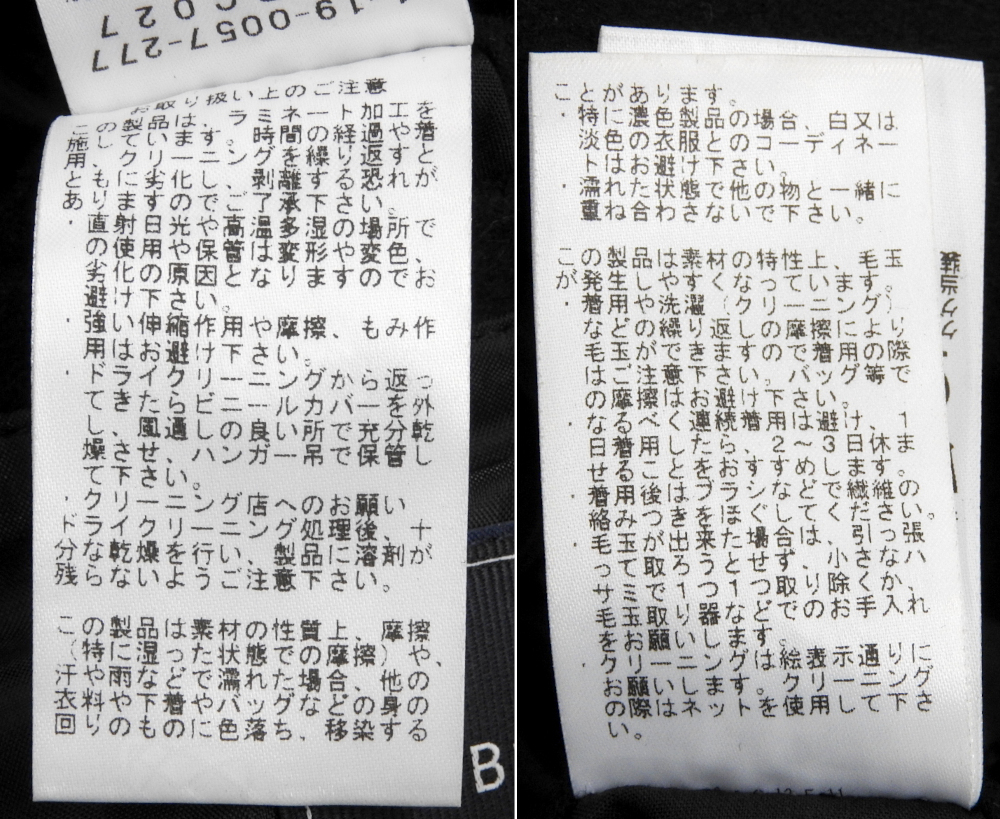 19-0057-277
C027
お取り扱い上のご注意
この製品は、ラミネート加工を
施しています。時間の経過や着
用、クリーニングを繰り返すと
ともに劣化し、剥離する恐れが
あります。ご了承下さい。
・直射日光や高温多湿の場所で
の使用や保管は変形や変色、
劣化の原因となりますのでお
避け下さい。
・強い伸縮作用や摩擦、もみ作
用はお避け下さい。
・ドライクリーニングから返っ
てきたらビニールカバーを外
し、風通しの良い所で充分乾
燥させ、ハンガー吊で保管し
て下さい。
・クリーニング店へのお願い
ドライクリーニング処理後、十
分な乾燥を行い、製品に溶剤が
残らないようご注意下さい。
この製品は素材の性質上、摩擦
（特に湿った状態での摩擦）や、
汗や雨などで濡れた場合、他の
衣料や下着やバッグなどの身の
回りのものに色落ち、移染する
B
ことがあります。
・特に濃色製品の場合、白又は
淡色の衣服とのコーディネー
トはお避け下さい。
・濡れた状態で他の物と一緒に
重ね合わさないで下さい。
この製品は素材の特性上、毛玉
が発生しやすくなっています。
・着用や洗濯（クリーニング）
などの繰り返しの摩擦により
毛玉ができますので着用の際
はご注意下さい。バッグ等で
の摩擦はお避け下さい。
なるべく連続着用は避け、1
日着用したら、2～3日休ま
せることをおすすめします。
・着用後はブラシなどで繊維の
絡みつきをほぐしてください。
・毛玉が出来た場合は、引っ張
って取ろうとせず、小さなハ
サミで1つ1つ取り除くか、
毛玉取り器などでのお手入れ
をお願いします。
・クリーニングは絵表示通りに
お願いします。クリーニング
の際はネットを使用して下さ
い。